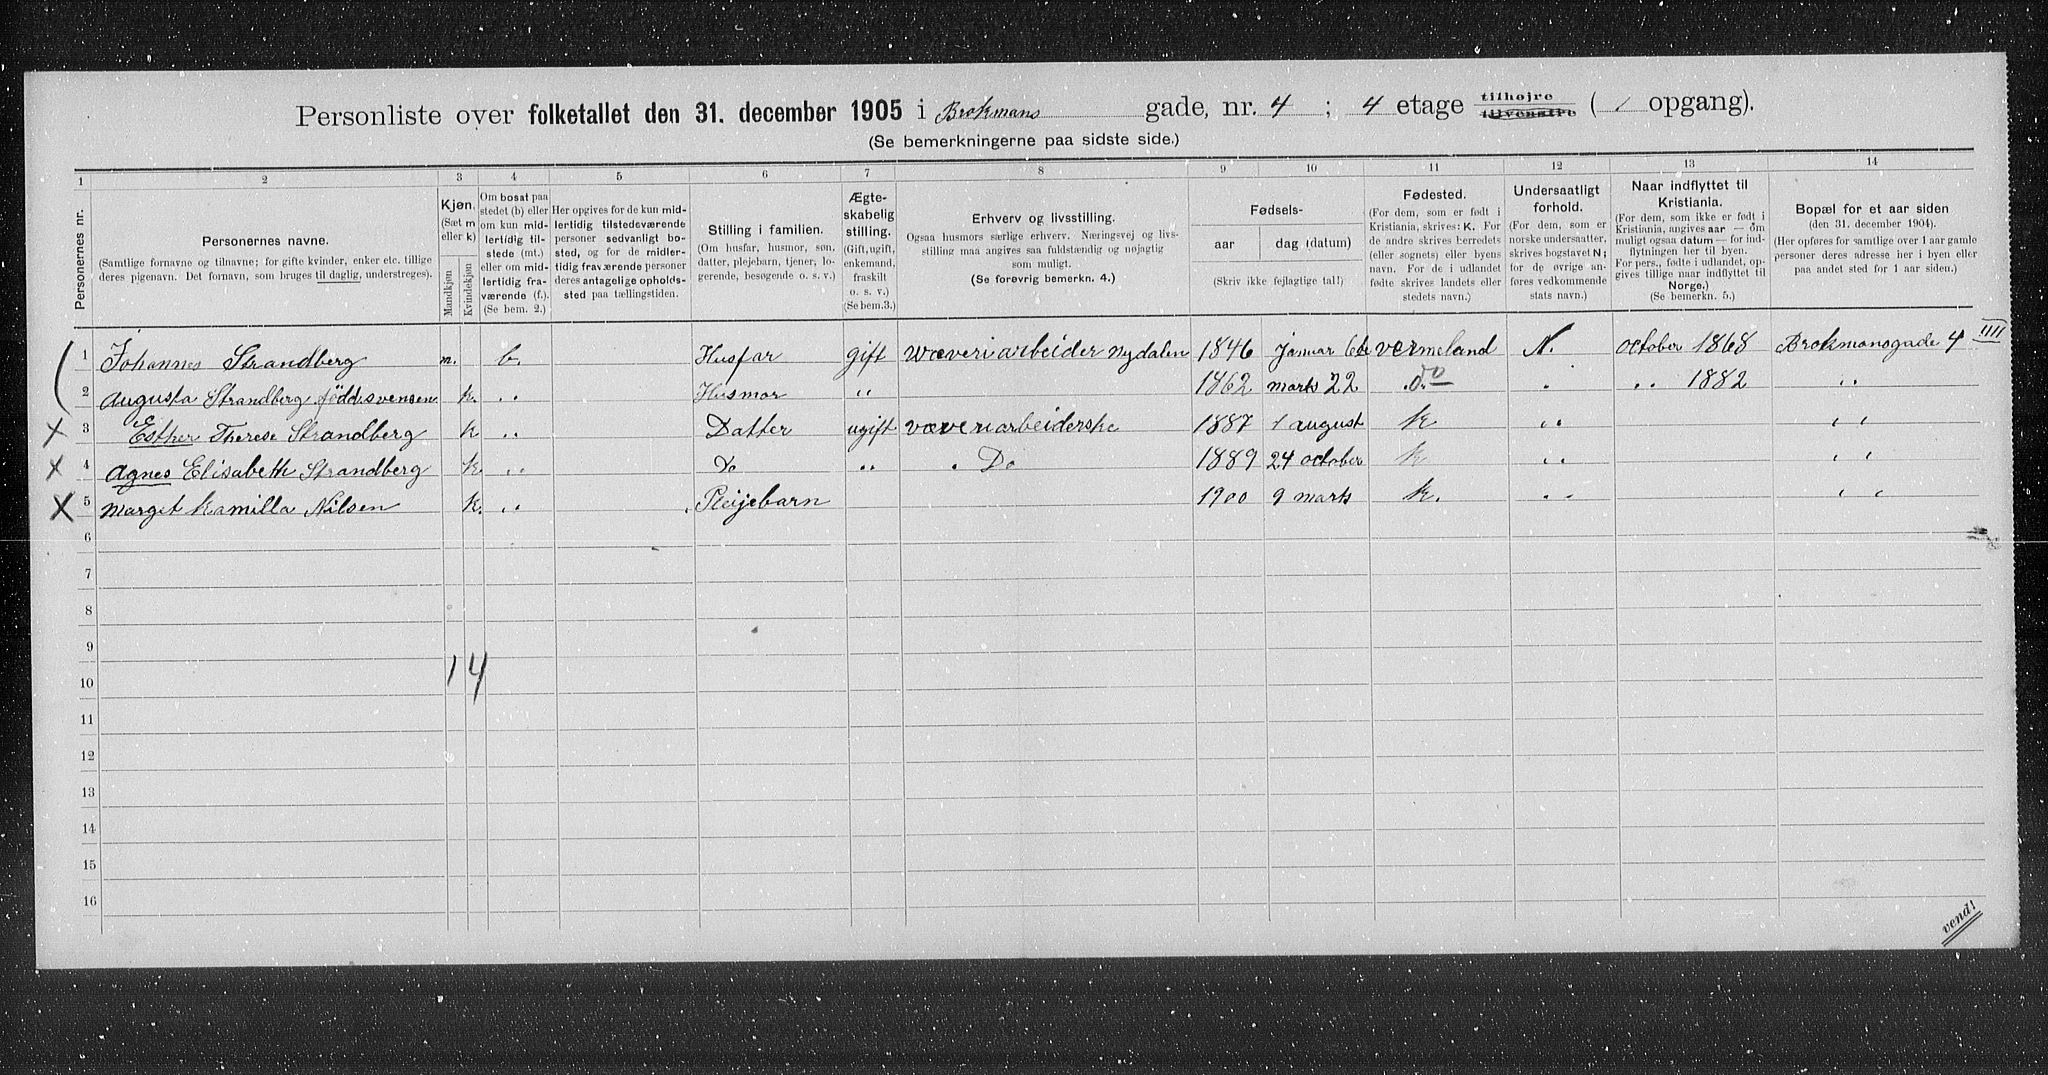 Personliste over folketallet den 31. december 1905 i Brokmans gade, nr. 4 ; 4 etage tilhøjre tilvenstre ( 1 opgang).
(Se bemerkningerne paa sidste side.)
1 2 3 4 5 6 7 8 9 10 11 12 13 14
Personernes nr.
Personernes navne.
(Samtlige fornavne og tilnavne; for gifte kvinder, enker etc. tillige
deres pigenavn. Det fornavn, som bruges til daglig, understreges).
Kjøn.
(Sæt m
eller k)
Mandkjøn
Kvindekjøn
Om bosat paa
stedet (b) eller
om kun mid-
lertidig til-
stede (mt.)
eller om mid-
lertidig fra-
værende (f.).
(Se bem. 2.)
Her opgives for de kun mid-
lertidig tilstedeværende
personer sedvanlig bo-
sted, og for de midler-
tidig fraværende personer
deres antagelige opholds-
sted paa tællingstiden.
Stilling i familien.
(Om husfar, husmor, søn,
datter, plejebarn, tjener, lo-
gerende, besøgende o. s. v.)
Ægte-
skabelig
stilling.
(Gift, ugift,
enkemand,
fraskilt
o. s. v.)
(Se bem.3.)
Erhverv og livsstilling.
Ogsaa husmors særlige erhverv. Næringsvej og livs-
stilling maa angives saa fuldstændig og nøjagtig
som muligt.
(Se forøvrig bemerkn. 4.)
Fødsels-
aar
dag (datum)
(Skriv ikke fejlagtige tal!)
Fødested.
(For dem, som er født i
Kristiania, skrives: K. For
de andre skrives herredets
(eller sognets) eller byens
navn. For de i udlandet
fødte skrives landets eller
stedets navn.)
Undersaatligt
forhold.
(For dem, som er
norske undersaatter,
skrives bogstavet N;
for de øvrige an-
føres vedkommende
stats navn.)
Naar indflyttet til
Kristiania.
(For dem, som ikke er født i
Kristiania, angives aar — om
muligt ogsaa datum — for ind-
flytningen her til byen.
For pers., fødte i udlandet, op-
gives tillige naar indflyttet til
Norge.)
(Se bemerkn. 5.)
Bopæl for et aar siden
(den 31. december 1904).
(Her opføres for samtlige over 1 aar gamle
personer deres adresse her i byen eller
paa andet sted for 1 aar siden.)
1 Johannes Strandberg m. b. Husfar gift Wæveriarbeider Nydalen 1846 Januar 6te vermeland N. october 1868 Brokmansgade 4 IIII
2 Augusta Strandberg född svensen k. " Husmor " 1862 marts 22 do " " 1882 "
3 Esther Therese Strandberg k " Datter ugift væveriarbeiderske 1887 1 august k " "
4 Agnes Elisabeth Strandberg k. " Do " Do 1889 24 october k " "
5 Margit Kamilla Nilsen k. " Pleijebarn 1900 9 marts k. " "
6
7
8
9
1 4
10
11
12
13
14
15
16
vend!